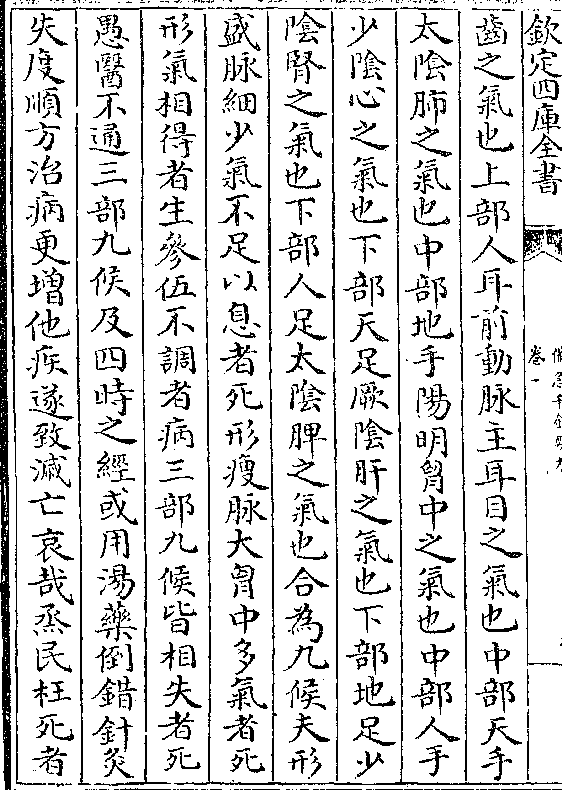 欽定四庫全書
卷一
齒之氣也上部人耳前動脉主耳目之氣也中部天手
太陰肺之氣也中部地手陽明胷中之氣也中部人手
少陰心之氣也下部天足厥陰肝之氣也下部地足少
陰腎之氣也下部人足太陰脾之氣也合為九候夫形
盛脉細少氣不足以息者死形瘦脉大胷中多氣者死
形氣相得者生參伍不調者病三部九候皆相失者死
愚醫不通三部九候及四時之經或用湯藥倒錯針灸
失度順方治病更增他疾遂致滅亡哀哉烝民枉死者